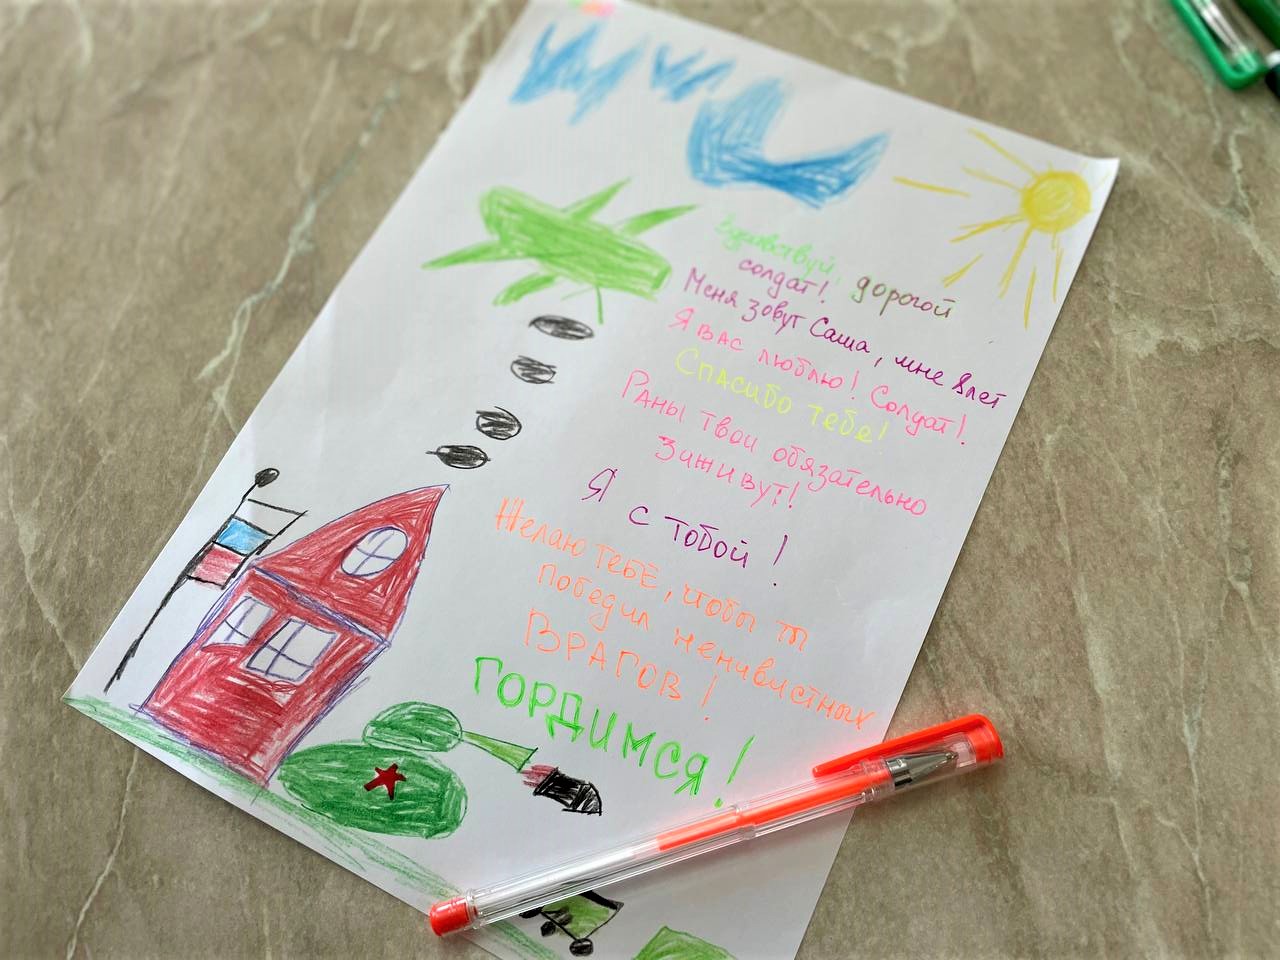 Здравствуй, дорогой
солдат!
Меня зовут Саша, мне 8 лет
Я вас люблю! Солдат!
Спасибо тебе!
Раны твои обязательно
заживут!
Я с тобой!
Желаю тебе, чтобы ты
победил ненивистных
ВРАГОВ!
ГОРДИМСЯ!